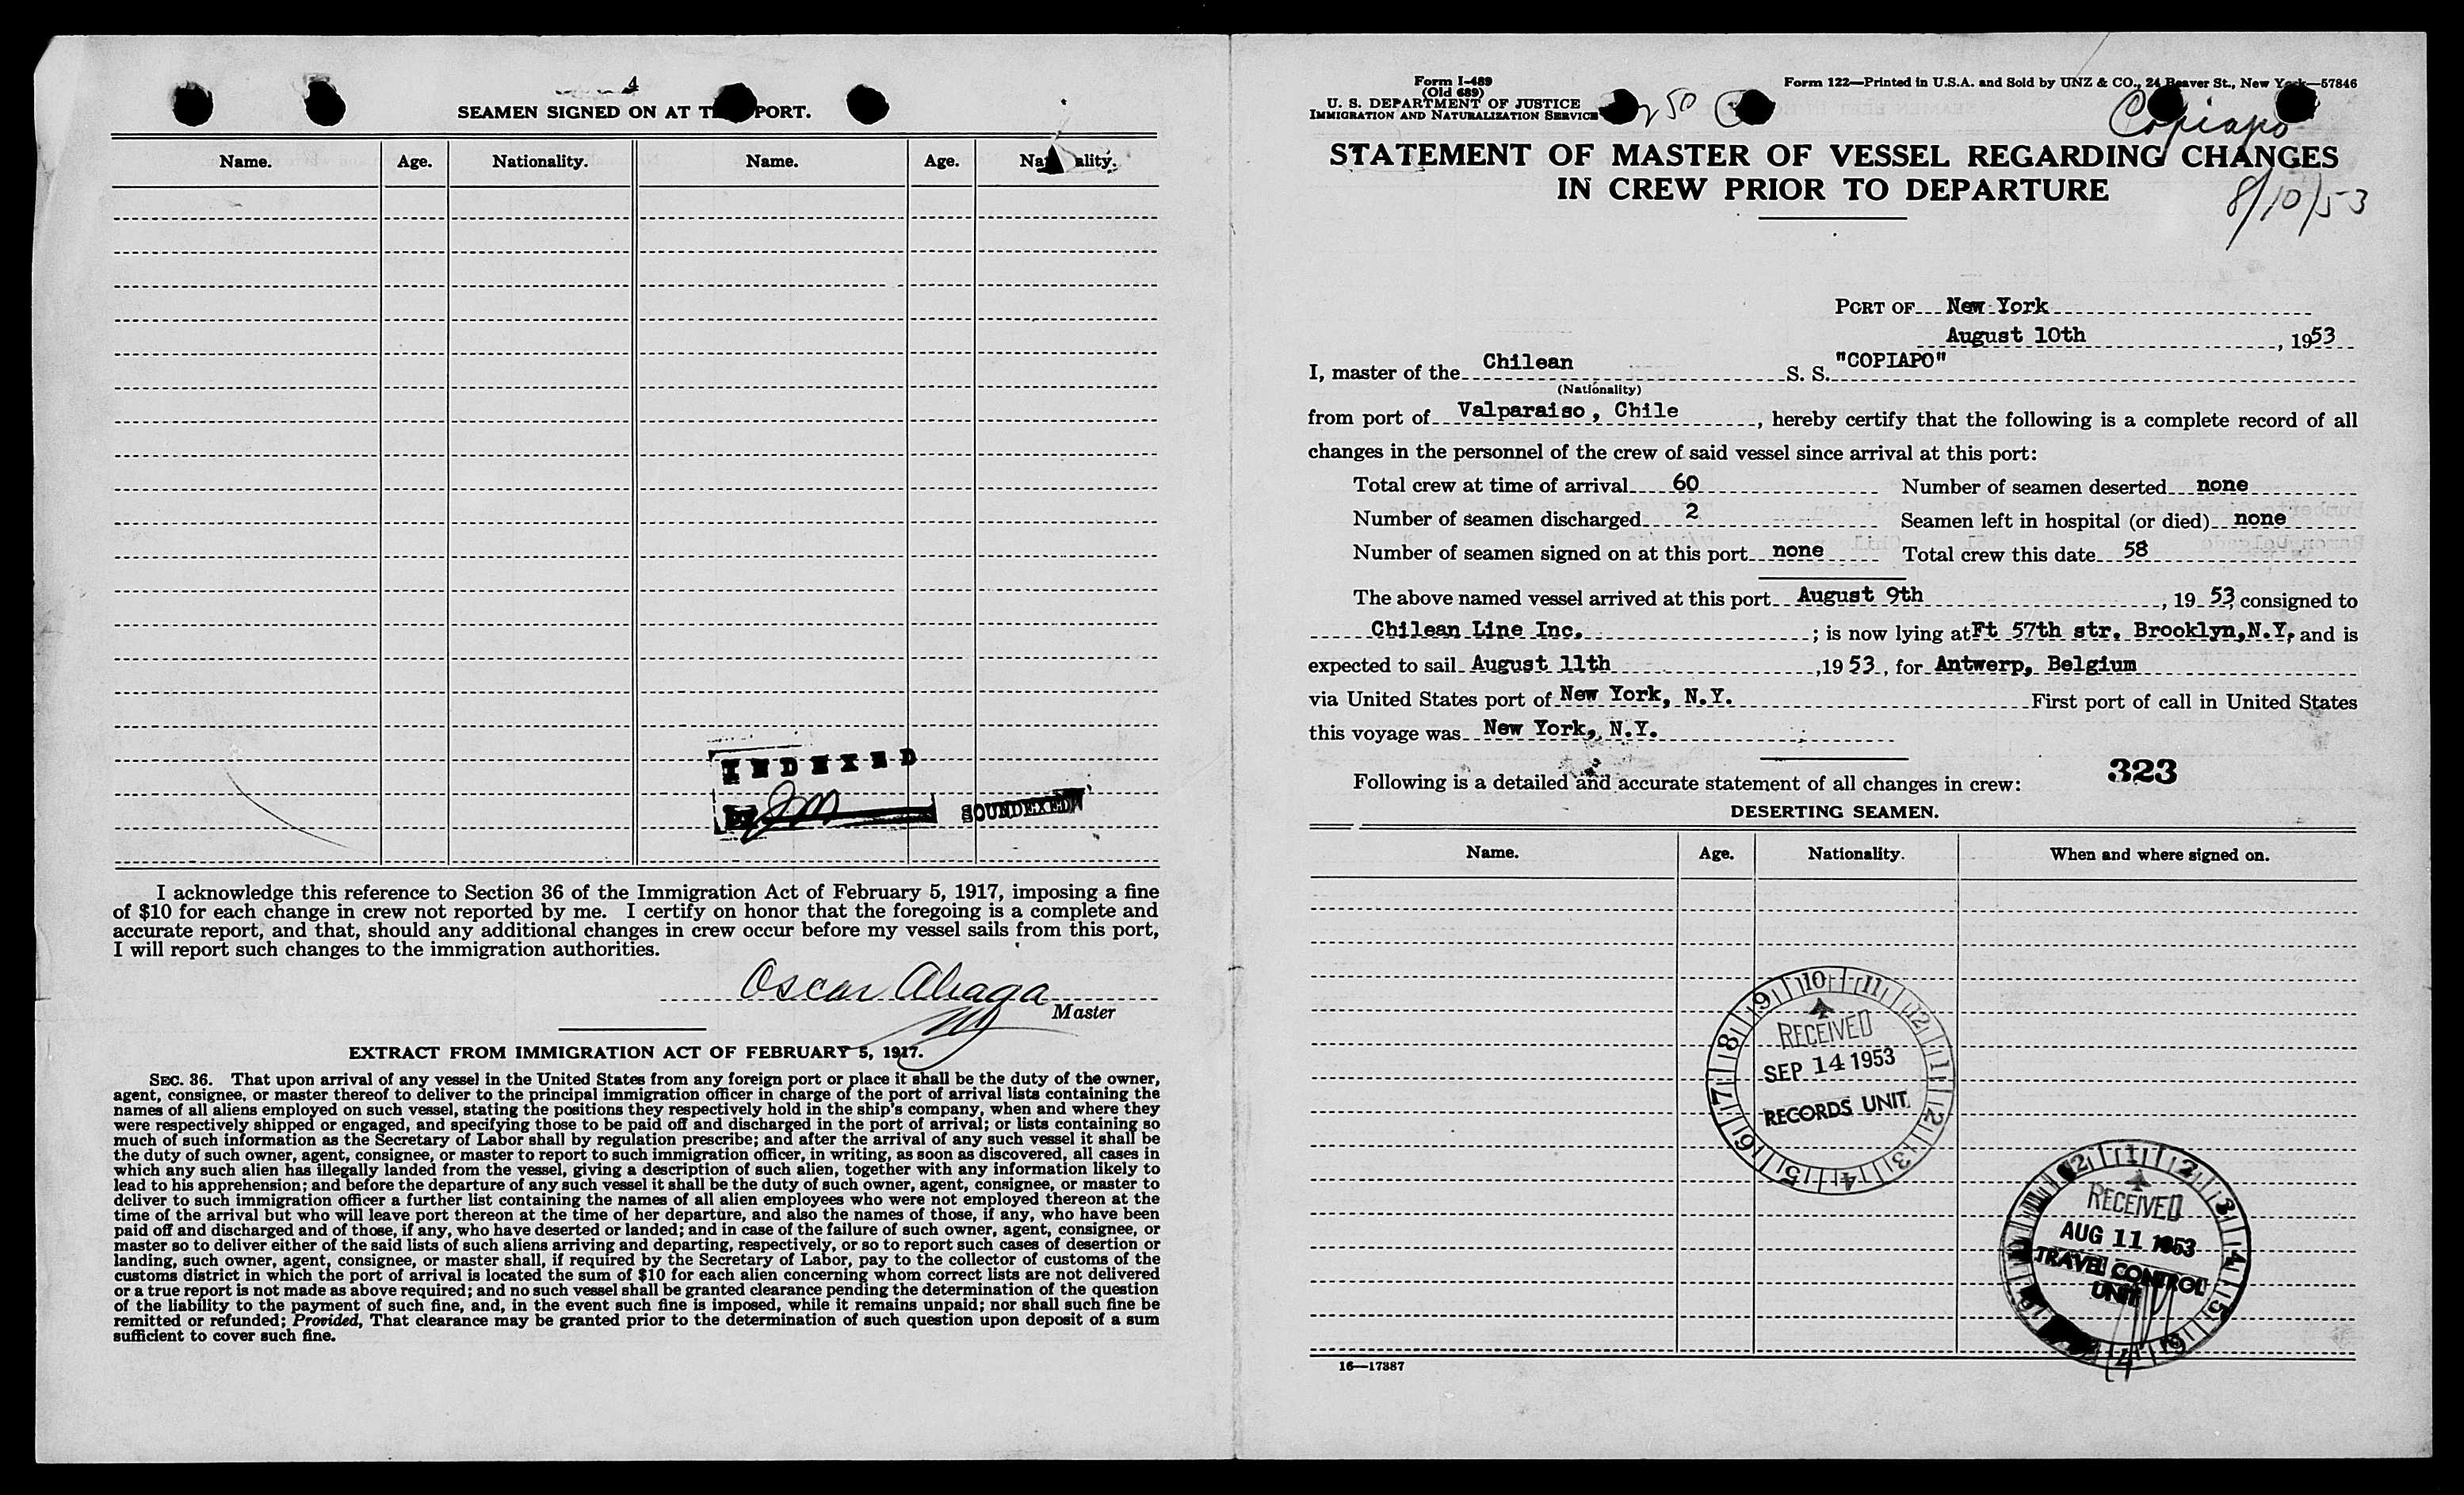 4
SEAMEN SIGNED ON AT PORT.
Name. Age. Nationality. Name. Age. Nationality.
INDEXED
By JM
SOUNDEXED
I acknowledge this reference to Section 36 of the Immigration Act of February 5, 1917, imposing a fine
of $10 for each change in crew not reported by me. I certify on honor that the foregoing is a complete and
accurate report, and that, should any additional changes in crew occur before my vessel sails from this port,
I will report such changes to the immigration authorities.
Oscar Aliaga
Master
EXTRACT FROM IMMIGRATION ACT OF FEBRUARY 5, 1917.
SEC. 36. That upon arrival of any vessel in the United States from any foreign port or place it shall be the duty of the owner,
agent, consignee, or master thereof to deliver to the principal immigration officer in charge of the port of arrival lists containing the
names of all aliens employed on such vessel, stating the positions they respectively hold in the ship's company, when and where they
were respectively shipped or engaged, and specifying those to be paid off and discharged in the port of arrival; or lists containing so
much of such information as the Secretary of Labor shall by regulation prescribe; and after the arrival of any such vessel it shall be
the duty of such owner, agent, consignee, or master to report to such immigration officer, in writing, as soon as discovered, all cases in
which any such alien has illegally landed from the vessel, giving a description of such alien, together with any information likely to
lead to his apprehension; and before the departure of any such vessel it shall be the duty of such owner, agent, consignee, or master to
deliver to such immigration officer a further list containing the names of all alien employees who were not employed thereon at the
time of the arrival but who will leave port thereon at the time of her departure, and also the names of those, if any, who have been
paid off and discharged and of those, if any, who have deserted or landed; and in case of the failure of such owner, agent, consignee, or
master so to deliver either of the said lists of such aliens arriving and departing, respectively, or so to report such cases of desertion or
landing, such owner, agent, consignee, or master shall, if required by the Secretary of Labor, pay to the collector of customs of the
customs district in which the port of arrival is located the sum of $10 for each alien concerning whom correct lists are not delivered
or a true report is not made as above required; and no such vessel shall be granted clearance pending the determination of the question
of the liability to the payment of such fine, and, in the event such fine is imposed, while it remains unpaid; nor shall such fine be
remitted or refunded; Provided, That clearance may be granted prior to the determination of such question upon deposit of a sum
sufficient to cover such fine.
Form I-489
(Old 689)
U. S. DEPARTMENT OF JUSTICE
IMMIGRATION AND NATURALIZATION SERVICE
Form 122—Printed in U.S.A. and Sold by UNZ & CO., 24 Beaver St., New York—57846
Copiapo
STATEMENT OF MASTER OF VESSEL REGARDING CHANGES
IN CREW PRIOR TO DEPARTURE
8/10/53
PORT OF New York
August 10th, 1953
I, master of the Chilean S. S. "COPIAPO"
(Nationality)
from port of Valparaiso, Chile, hereby certify that the following is a complete record of all
changes in the personnel of the crew of said vessel since arrival at this port:
Total crew at time of arrival 60 Number of seamen deserted none
Number of seamen discharged 2 Seamen left in hospital (or died) none
Number of seamen signed on at this port none Total crew this date 58
The above named vessel arrived at this port August 9th, 1953, consigned to
Chilean Line Inc.; is now lying at Ft 57th str. Brooklyn, N.Y, and is
expected to sail August 11th, 1953, for Antwerp, Belgium
via United States port of New York, N.Y. First port of call in United States
this voyage was New York, N.Y.
Following is a detailed and accurate statement of all changes in crew:
323
DESERTING SEAMEN.
Name. Age. Nationality. When and where signed on.
RECEIVED
SEP 14 1953
RECORDS UNIT
RECEIVED
AUG 11 1953
TRAVEL CONTROL
UNIT
16—17387